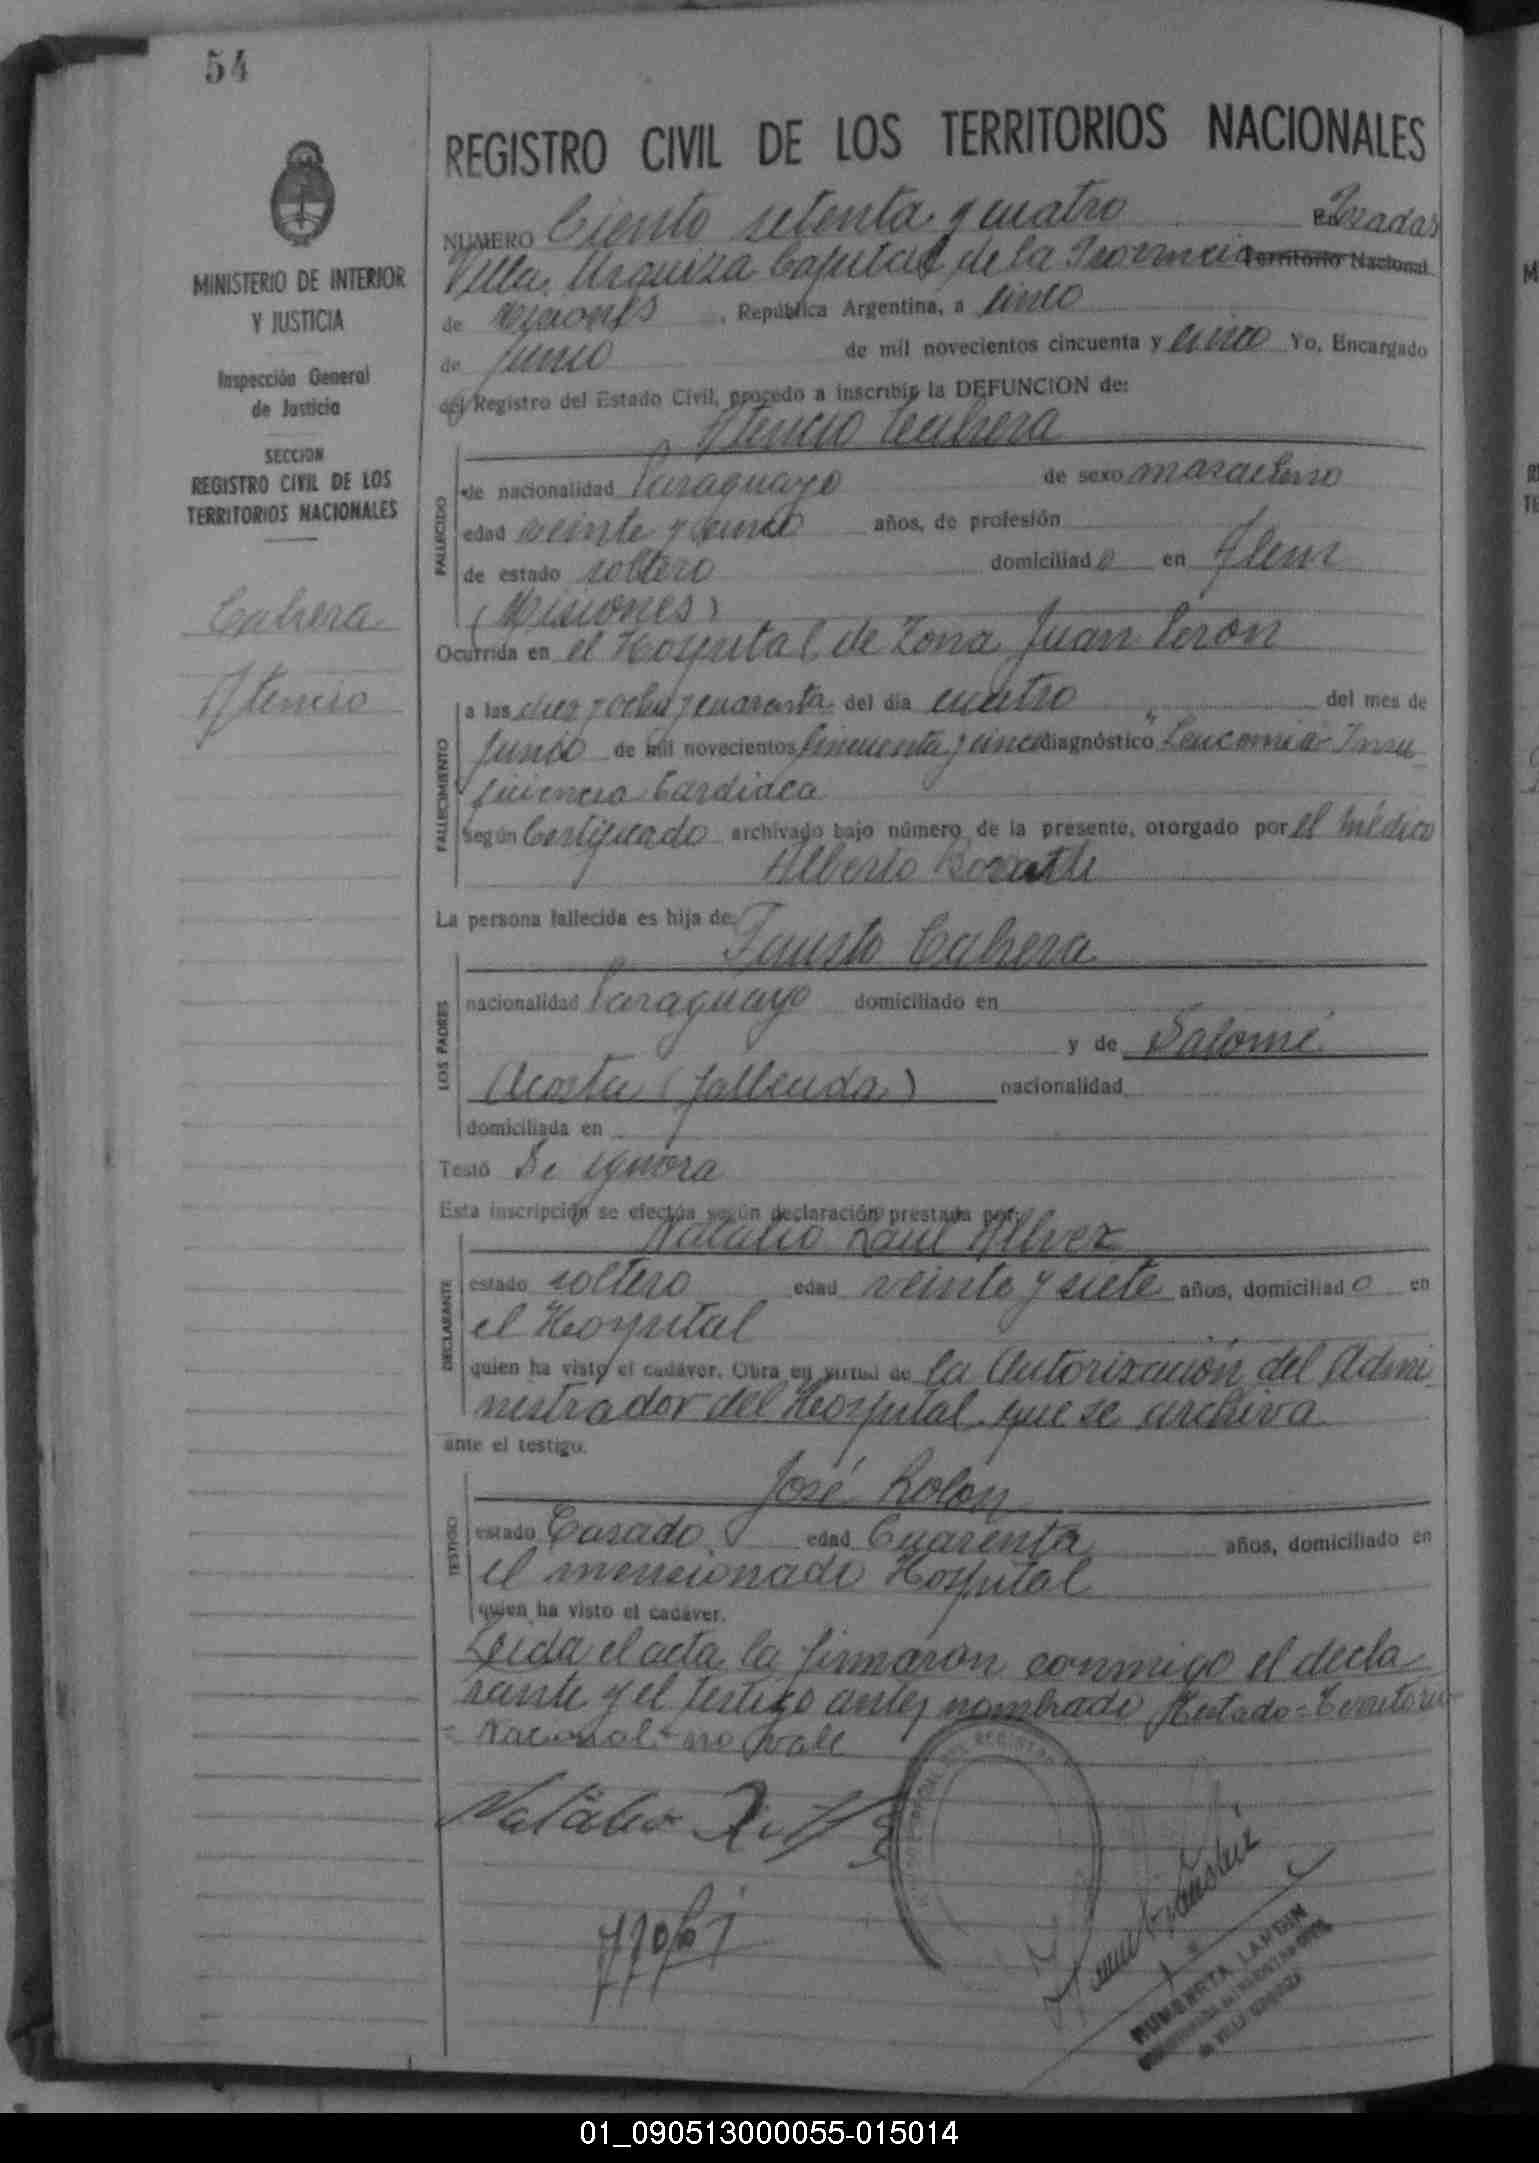 54
REGISTRO CIVIL DE LOS TERRITORIOS NACIONALES
MINISTERIO DE INTERIOR
Y JUSTICIA
Inspección General
de Justicia
SECCION
REGISTRO CIVIL DE LOS
TERRITORIOS NACIONALES
Cabrera
Atencio
NUMERO Ciento setenta y cuatro En Posadas
Villa Urquiza Capital de la Provincia Territorio Nacional
de Misiones, República Argentina, a cinco
de Junio de mil novecientos cincuenta y cinco Yo, Encargado
del Registro del Estado Civil, procedo a inscribir la DEFUNCION de:
Atencio Cabrera
FALLECIDO
de nacionalidad Paraguayo de sexo masculino
edad veinte y cinco años, de profesión
de estado soltero domiciliado en Alem
(Misiones)
Ocurrida en el Hospital de Zona Juan Peron
FALLECIMIENTO
a las diez y ocho y cuarenta del dia cuatro del mes de
Junio de mil novecientos cincuenta y cinco diagnóstico "Leucomia Insu
ficiencia Cardiaca
según Certificado archivado bajo número de la presente, otorgado por el Médico
Alberto
La persona fallecida es hija de:
Fausto Cabrera
LOS PADRES
nacionalidad Paraguayo domiciliado en
y de Salomé
Acosta (fallecida) nacionalidad
domiciliada en
Testó Se ignora
Esta inscripción se efectúa según declaración prestada por:
Natalio Raul Allvez
DECLARANTE
estado soltero edad veinte y siete años, domiciliado en
el Hospital
quien ha visto el cadáver. Obra en virtud de la Autorización del Admi
nistrador del Hospital que se archiva
ante el testigo.
José Rolon
TESTIGO
estado Casado edad Cuarenta años, domiciliado en
el mencionado Hospital
quien ha visto el cadáver.
Leida el acta la firmaron conmigo el decla
rante y el testigo antes nombrado Testado = Territorio
= Nacional = no vale
Natalio
HUMBERTA LAVEDIN
de VILLA URQUIZA
01_090513000055-015014